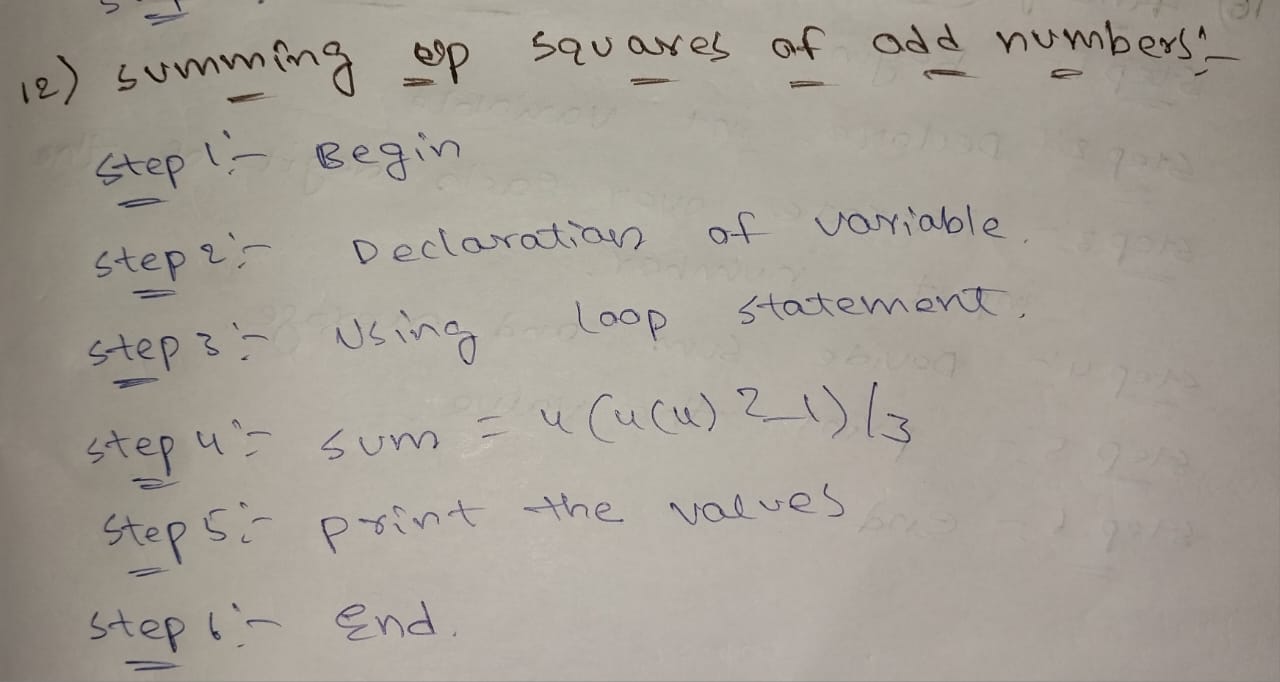 12) summing up squares of odd numbers:-
Step 1:- Begin
Step 2:- Declaration of variable.
Step 3:- Using loop statement.
Step 4:- sum = 4(4(4)2-1)/3
Step 5:- print the values
Step 6:- End.